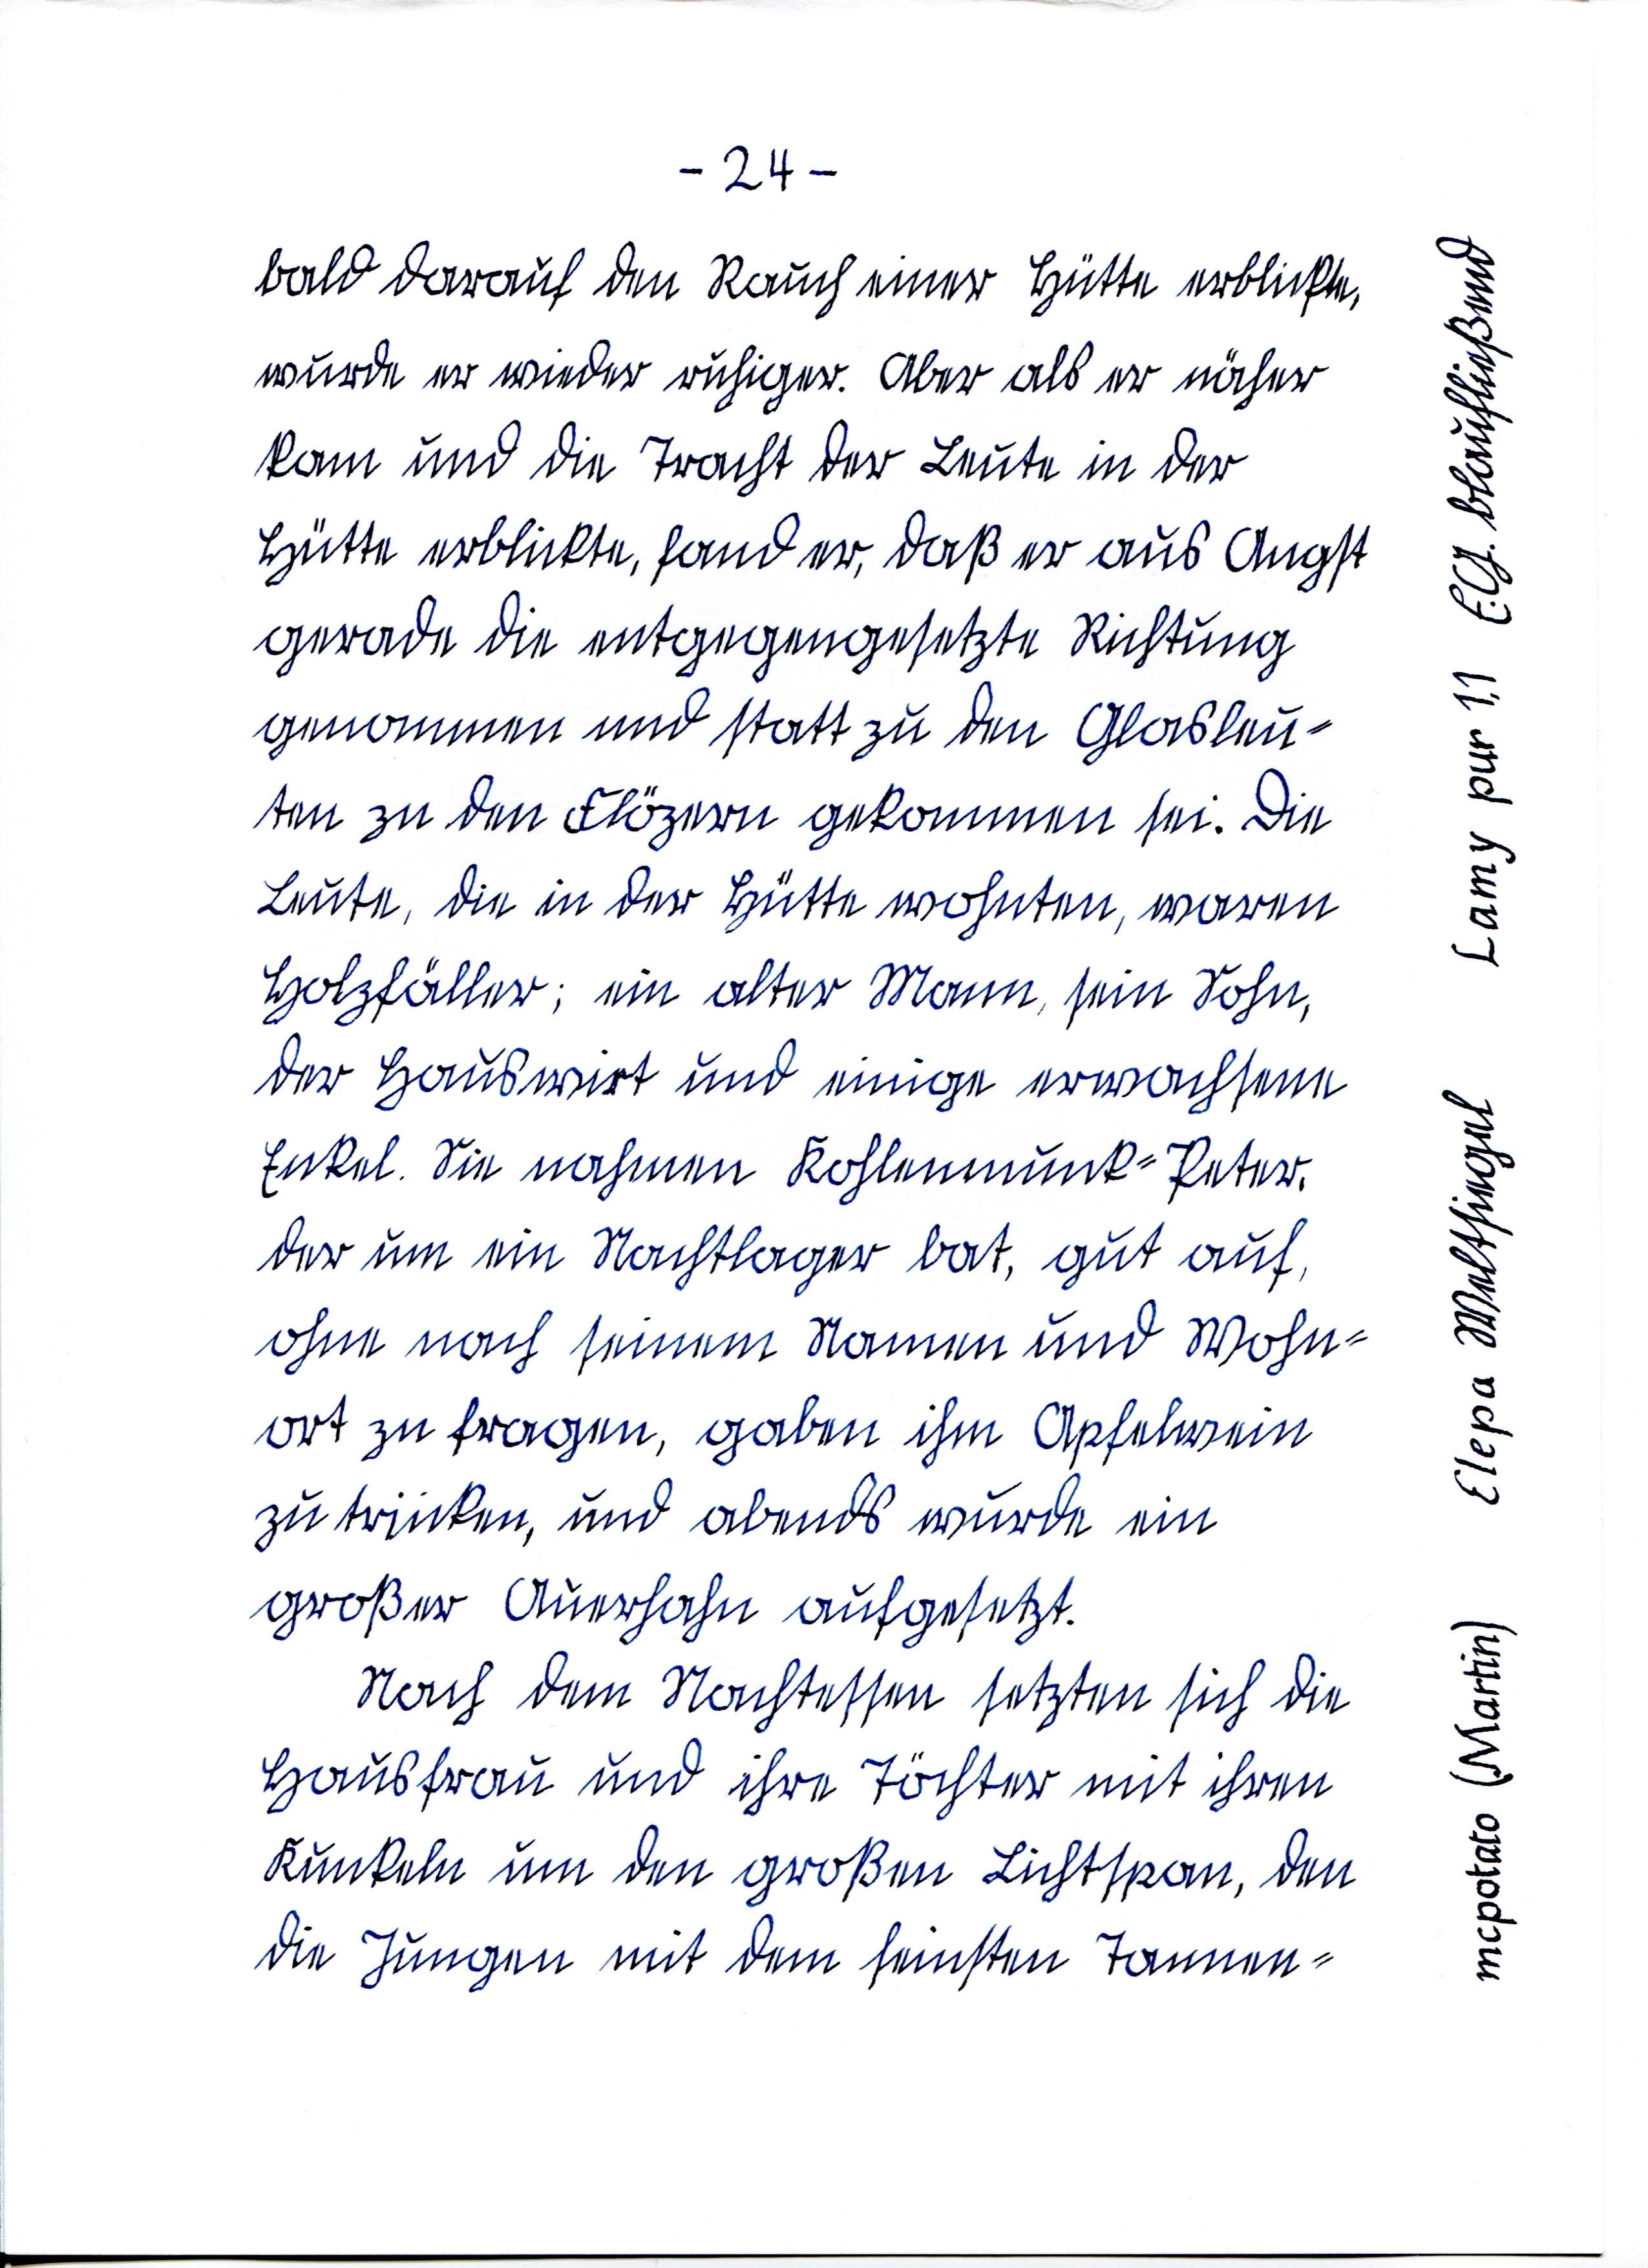 - 24 -
bald darauf den Rauch einer Hütte erblickte,
wurde er wieder ruhiger. Aber als er näher
kam und die Tracht der Leute in der
Hütte erblickte, fand er, daß er aus Angst
gerade die entgegengesetzte Richtung
genommen und statt zu den Glasleu=
ten zu den Flözern gekommen sei. Die
Leute, die in der Hütte wohnten, waren
Holzfäller; ein alter Mann, sein Sohn,
der Hauswirt und einige erwachsene
Enkel. Sie nahmen Kohlenmunk=Peter,
der um ein Nachtlager bat, gut auf,
ohne nach seinem Namen und Wohn=
ort zu fragen, gaben ihm Apfelwein
zu trinken, und abends wurde ein
großer Auerhahn aufgesetzt.
Nach dem Nachtessen setzten sich die
Hausfrau und ihre Töchter mit ihren
Kunkeln um den großen Lichtspan, den
die Jungen mit dem feinsten Tannen=
mcpotato (Martin) Elepa Weltsiegel Lamy pur 1.1 blaufließend